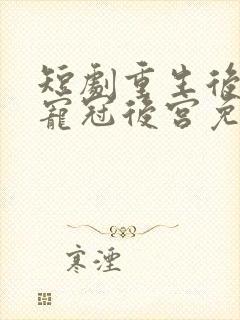 短劇重生後
寵冠後宮免
寒湮